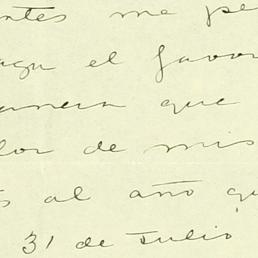 ntes me pe
aga el favor
anera que
lor de mis
s al año qu
31 de Julio